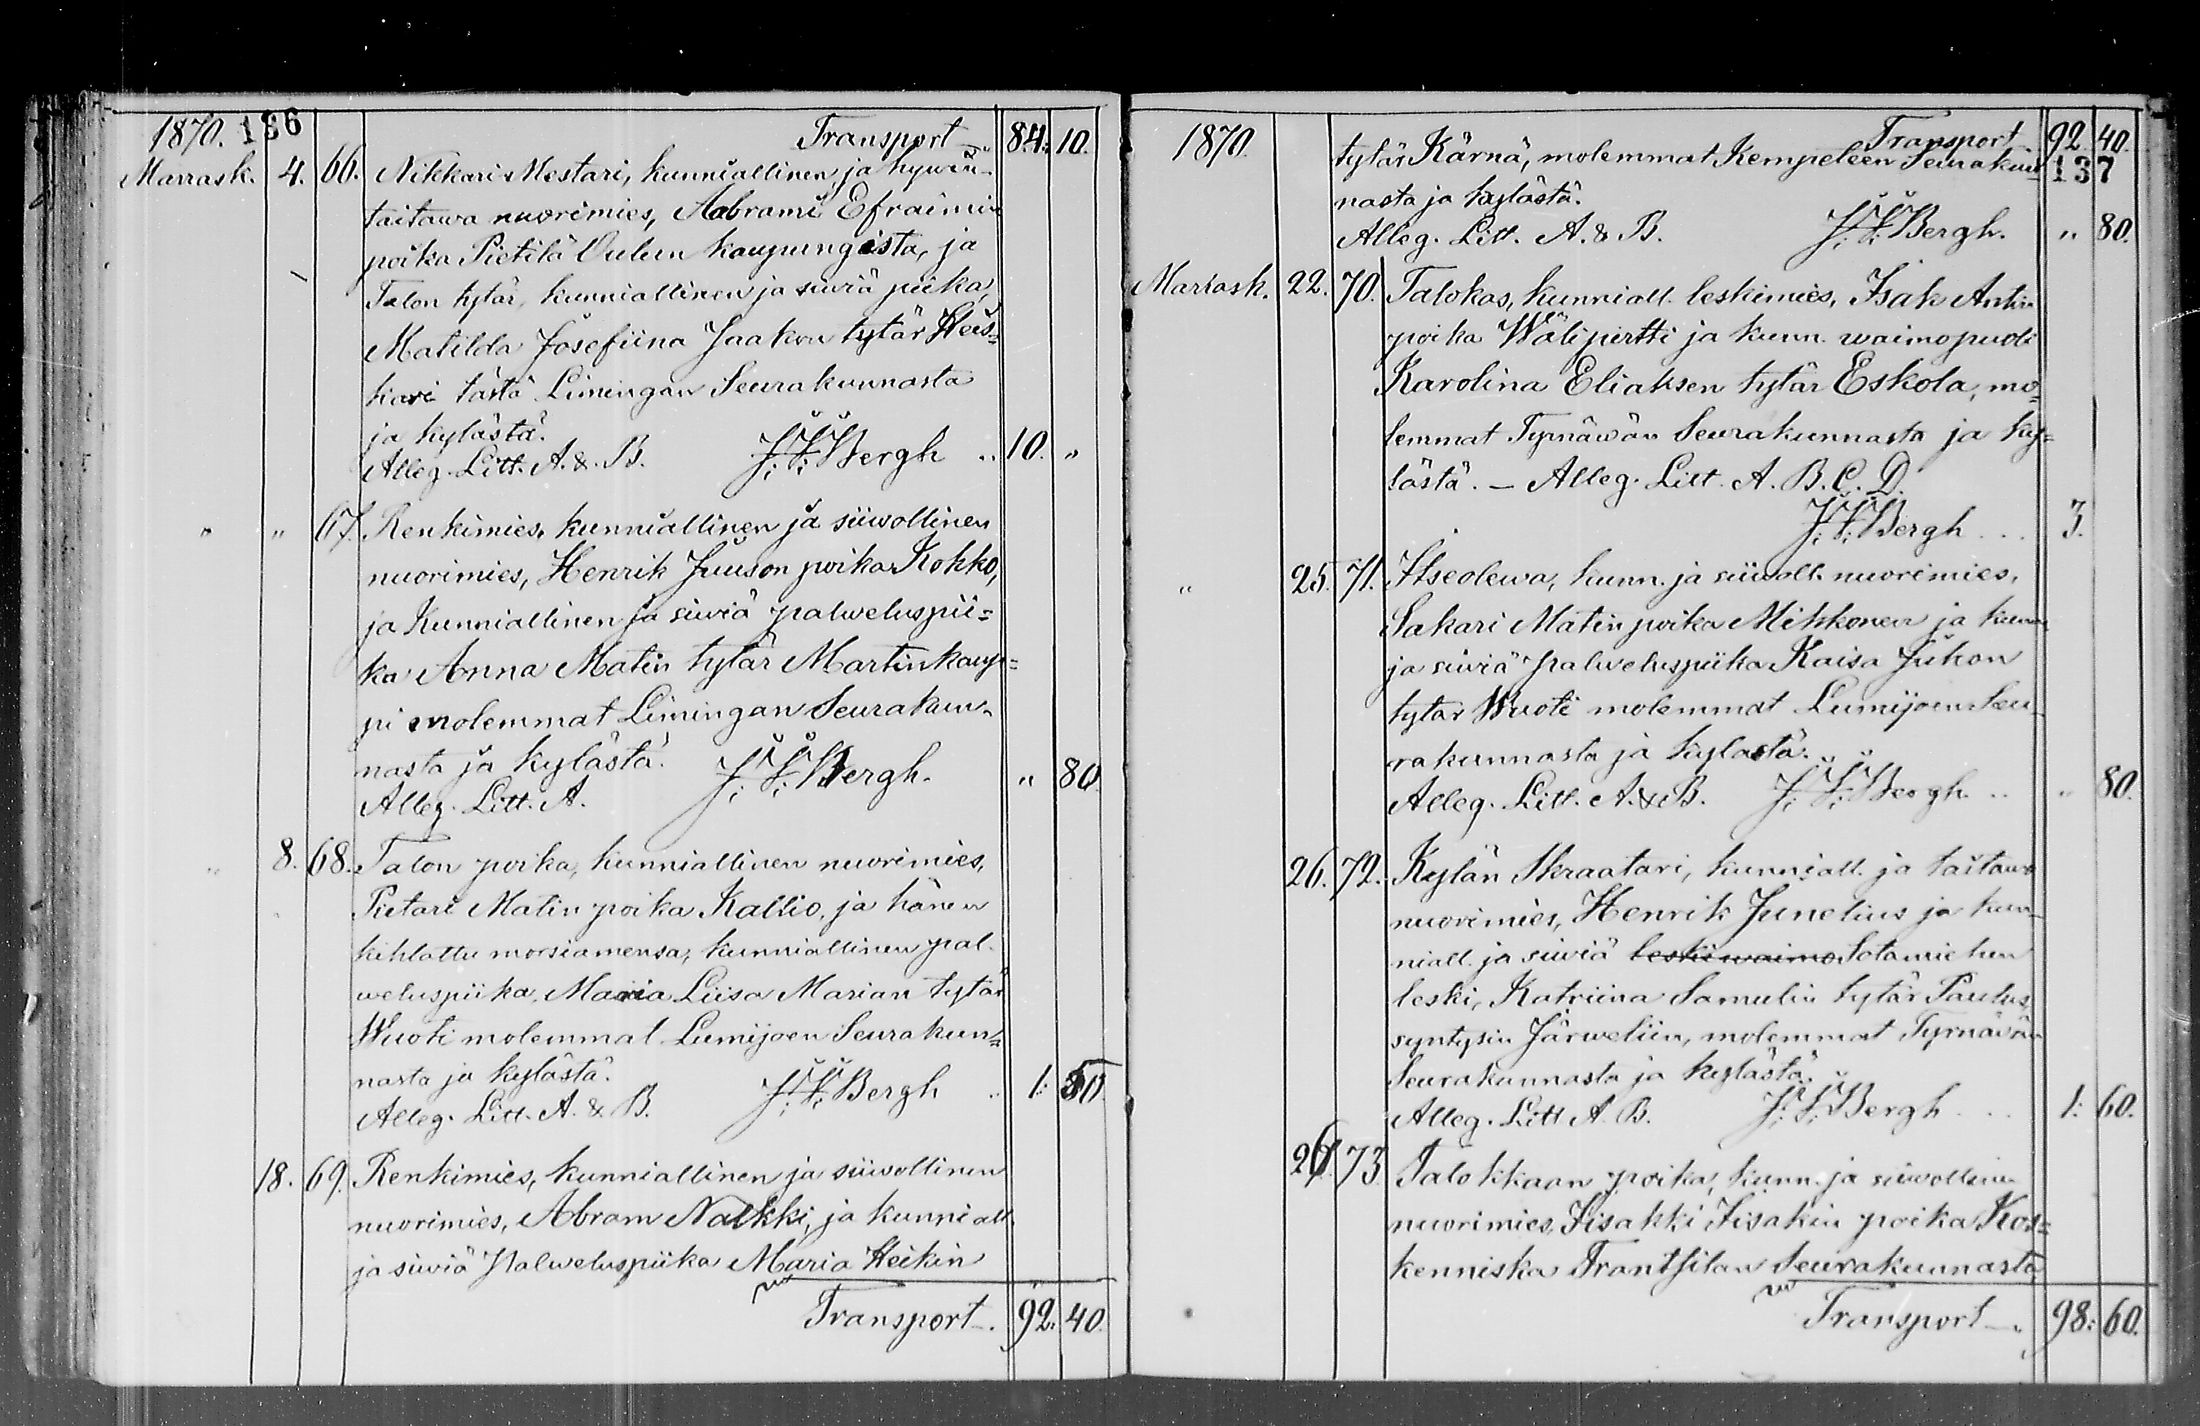 1870. 136 Transport 84: 10.
Marrask. 4. 66. Nikkari Mestari, kunniallinen ja hywän-
taitawa nuorimies, Aabrami Efraimin
poika Pietilä Oulun kaupungista, ja
Talon tytär, kunniallinen ja siwiä piika,
Matilda Josefiina Jaakon tytär Heis=
kari tästä Limingan Seurakunnasta
ja kylästä.
Alleg. Litt. A. & B. J. F. Bergh .. 10. "
" " 67. Renkimies, kunniallinen ja siiwollinen
nuorimies, Henrik Juuson poika Kokko,
ja Kunniallinen ja siwiä palweluspii=
ka Anna Matin tytär Martinkaup=
pi molemmat Limingan Seurakun-
nasta ja kylästä.
Alleg. Litt. A. J. F. Bergh. " 80.
" 8. 68. Talon poika, kunniallinen nuorimies,
Pietari Matin poika Kallio, ja hänen
kihlattu morsiamensa, kunniallinen pal-
weluspiika, Maria Liisa Marian tytär
Wuoti molemmat Lumijoen Seurakun=
nasta ja kylästä.
Alleg. Litt. A. & B. J. F. Bergh .. 1: 50
18. 69. Renkimies, kunniallinen ja siiwollinen
nuorimies, Abram Nalkki, ja kunniall.
ja siwiä Palweluspiika Maria Heikin
Transport. 92: 40.
1870. Transport 92. 40.
tytär Kärnä, molemmat Kempeleen Seurakun- 137
nasta ja kylästä.
Alleg. Litt. A. & B. J. F. Bergh. " 80.
Marrask. 22. 70. Talokas, kunniall. leskimies, Isak Antin
poika Wälipirtti ja kunn. waimopuoli
Karolina Eliaksen tytär Eskola, mo=
lemmat Tyrnäwän Seurakunnasta ja ky=
lästä. — Alleg. Litt. A. B. C. D.
J. F. Bergh ... 3.
" 25. 71. Itseolewa, kunn. ja siiwoll. nuorimies,
Sakari Matin poika Mikkonen ja kunn.
ja siwiä Palweluspiika Kaisa Juhon
tytär Wuoti molemmat Lumijoen Seu-
rakunnasta ja kylästä.
Alleg. Litt. A. & B. J. F. Bergh .. " 80.
26. 72. Kylän Skraatari, kunniall. ja taitawa
nuorimies, Henrik Junelius ja kun-
niall. ja siwiä leskiwaimo Sotamiehen
leski, Katriina Samulin tytär Paulus,
syntysin Järweliin, molemmat Tyrnäwän
Seurakunnasta ja kylästä.
Alleg. Litt A. B. J. F. Bergh ... 1: 60.
26. 73 Talokkaan poika, kunn. ja siiwollinen
nuorimies, Iisakki Iisakin poika Kos=
kenniska Frantsilan Seurakunnasta,
Transport 98: 60.